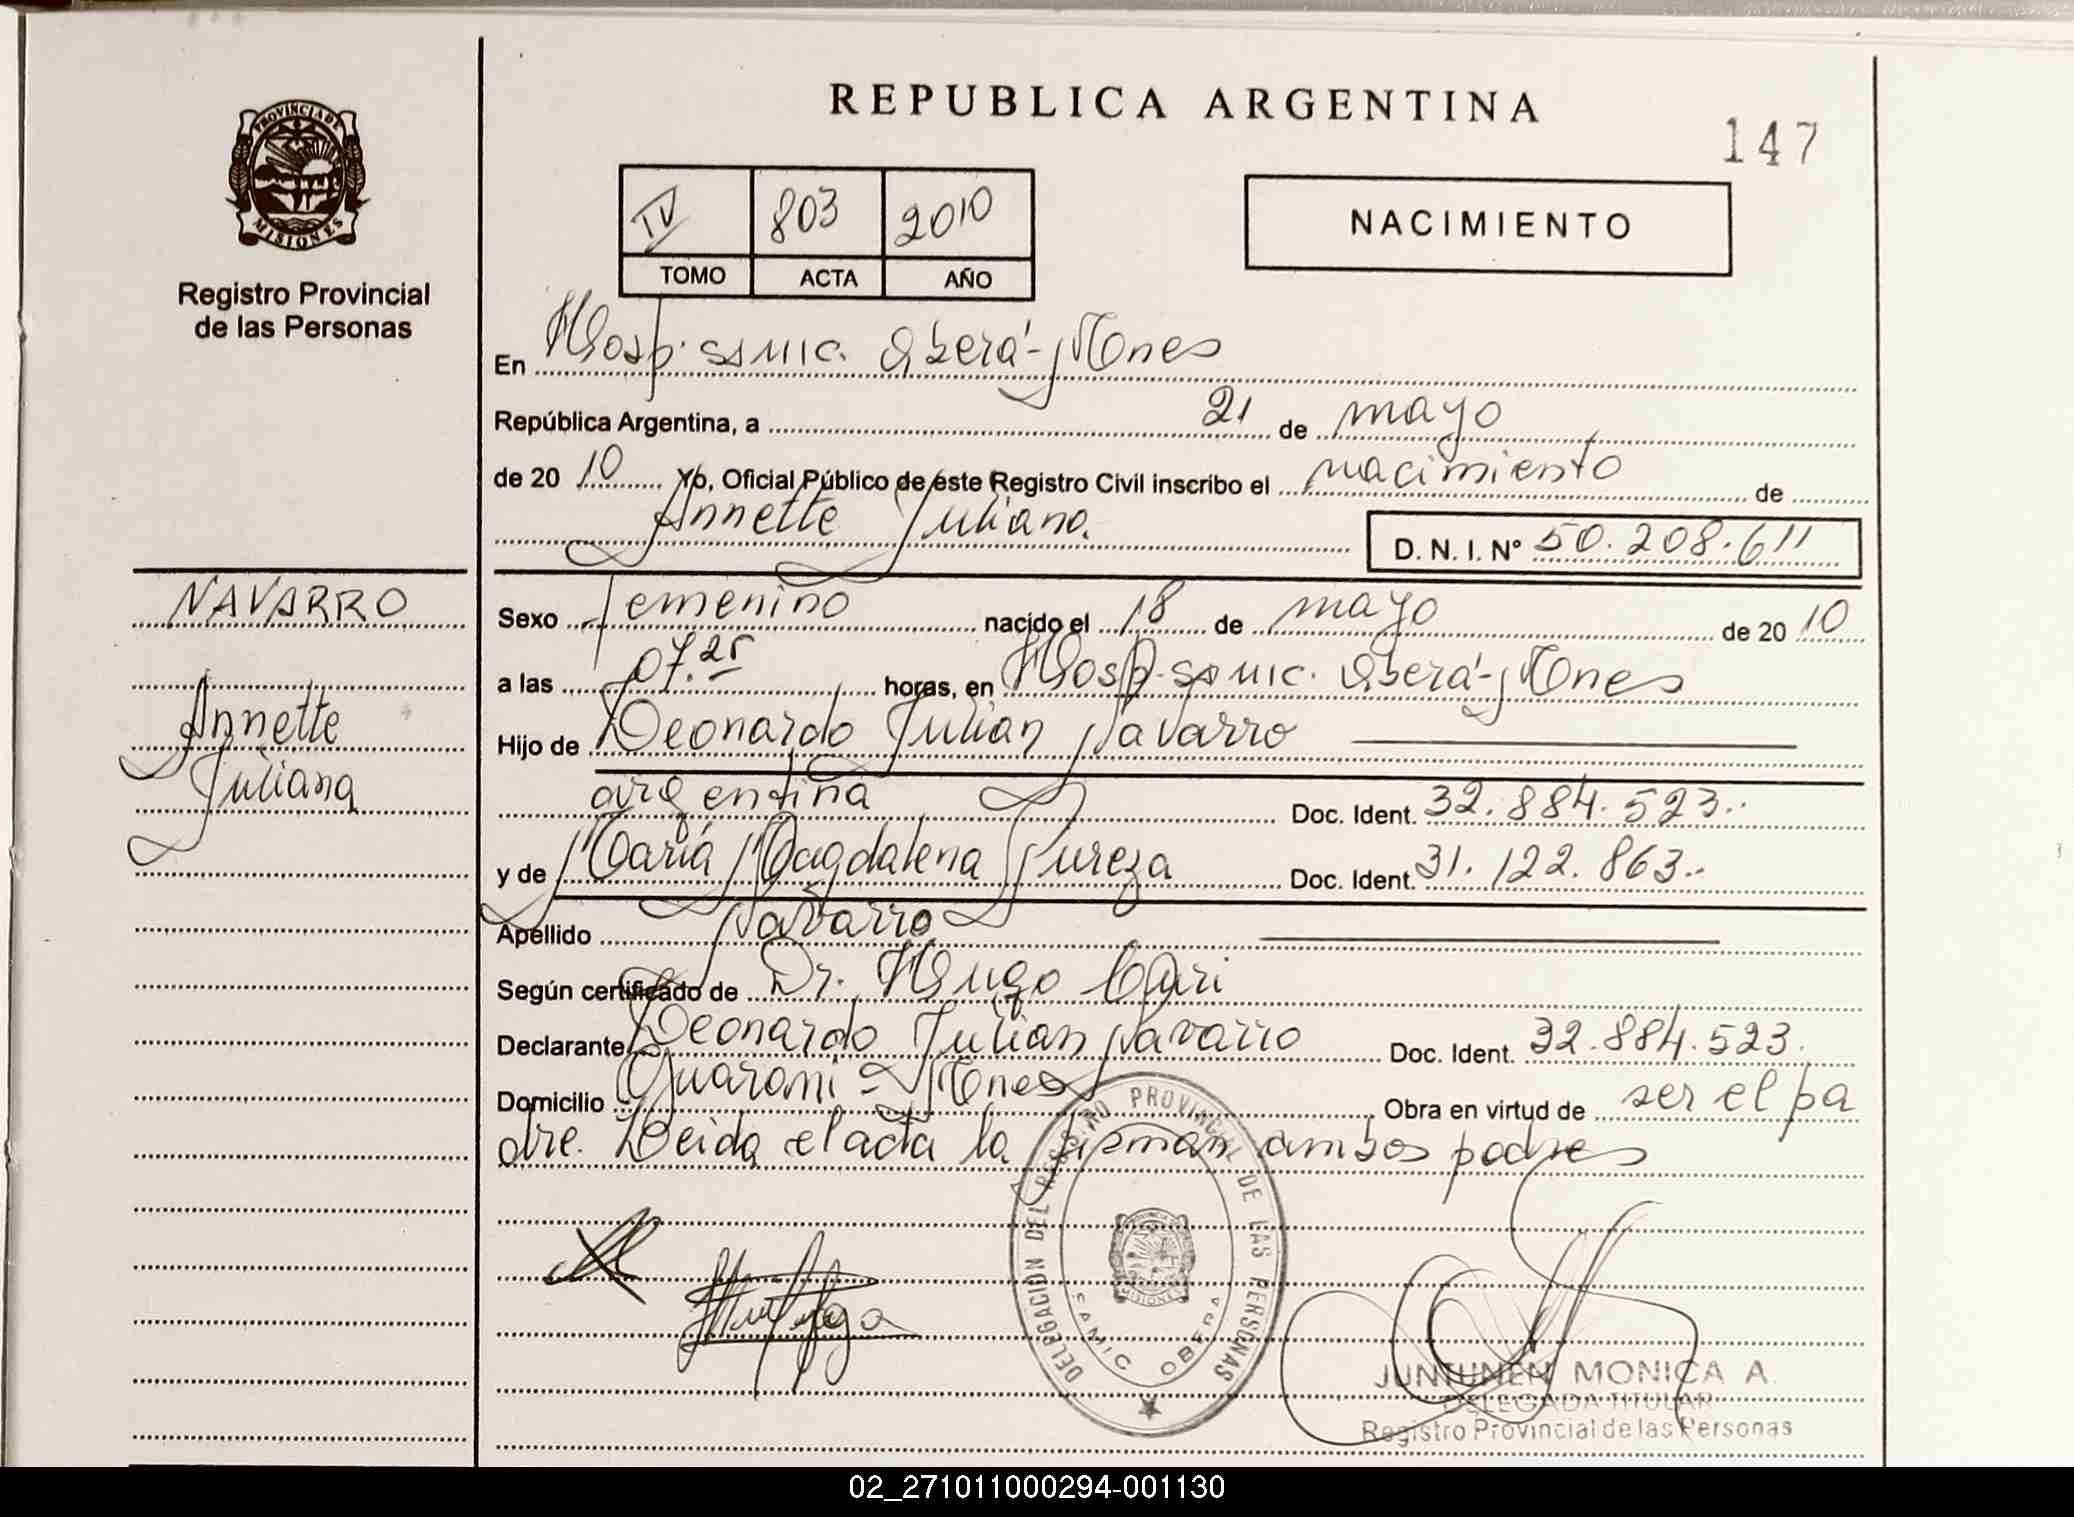 REPUBLICA ARGENTINA
147
PROVINCIA DE
MISIONES
Registro Provincial
de las Personas
IV 803 2010
TOMO ACTA AÑO
NACIMIENTO
En Hosp. SAMIC. Oberá - Mnes
República Argentina, a 21 de mayo
de 20 10 Yo, Oficial Público de este Registro Civil inscribo el nacimiento de
Annette Juliana
D. N. I. Nº 50.208.611
NAVARRO
Annette
Juliana
Sexo femenino nacido el 18 de mayo de 20 10
a las 07.25 horas, en Hosp. SAMIC. Oberá - Mnes
Hijo de Leonardo Julian Navarro
argentina Doc. Ident. 32.884.523.
y de María Magdalena Pureza Doc. Ident. 31.122.863.
Apellido Navarro
Según certificado de Dr. Hugo Cari
Declarante Leonardo Julian Navarro Doc. Ident. 32.884.523.
Domicilio Guarani = Mnes Obra en virtud de ser el pa
dre. Leida el acta la firman ambos padres
DELEGACIÓN DEL REGISTRO PROVINCIAL DE LAS PERSONAS
MISIONES
SAMIC OBERA
JUNTUNEN MONICA A.
DELEGADA TITULAR
Registro Provincial de las Personas
02_271011000294-001130